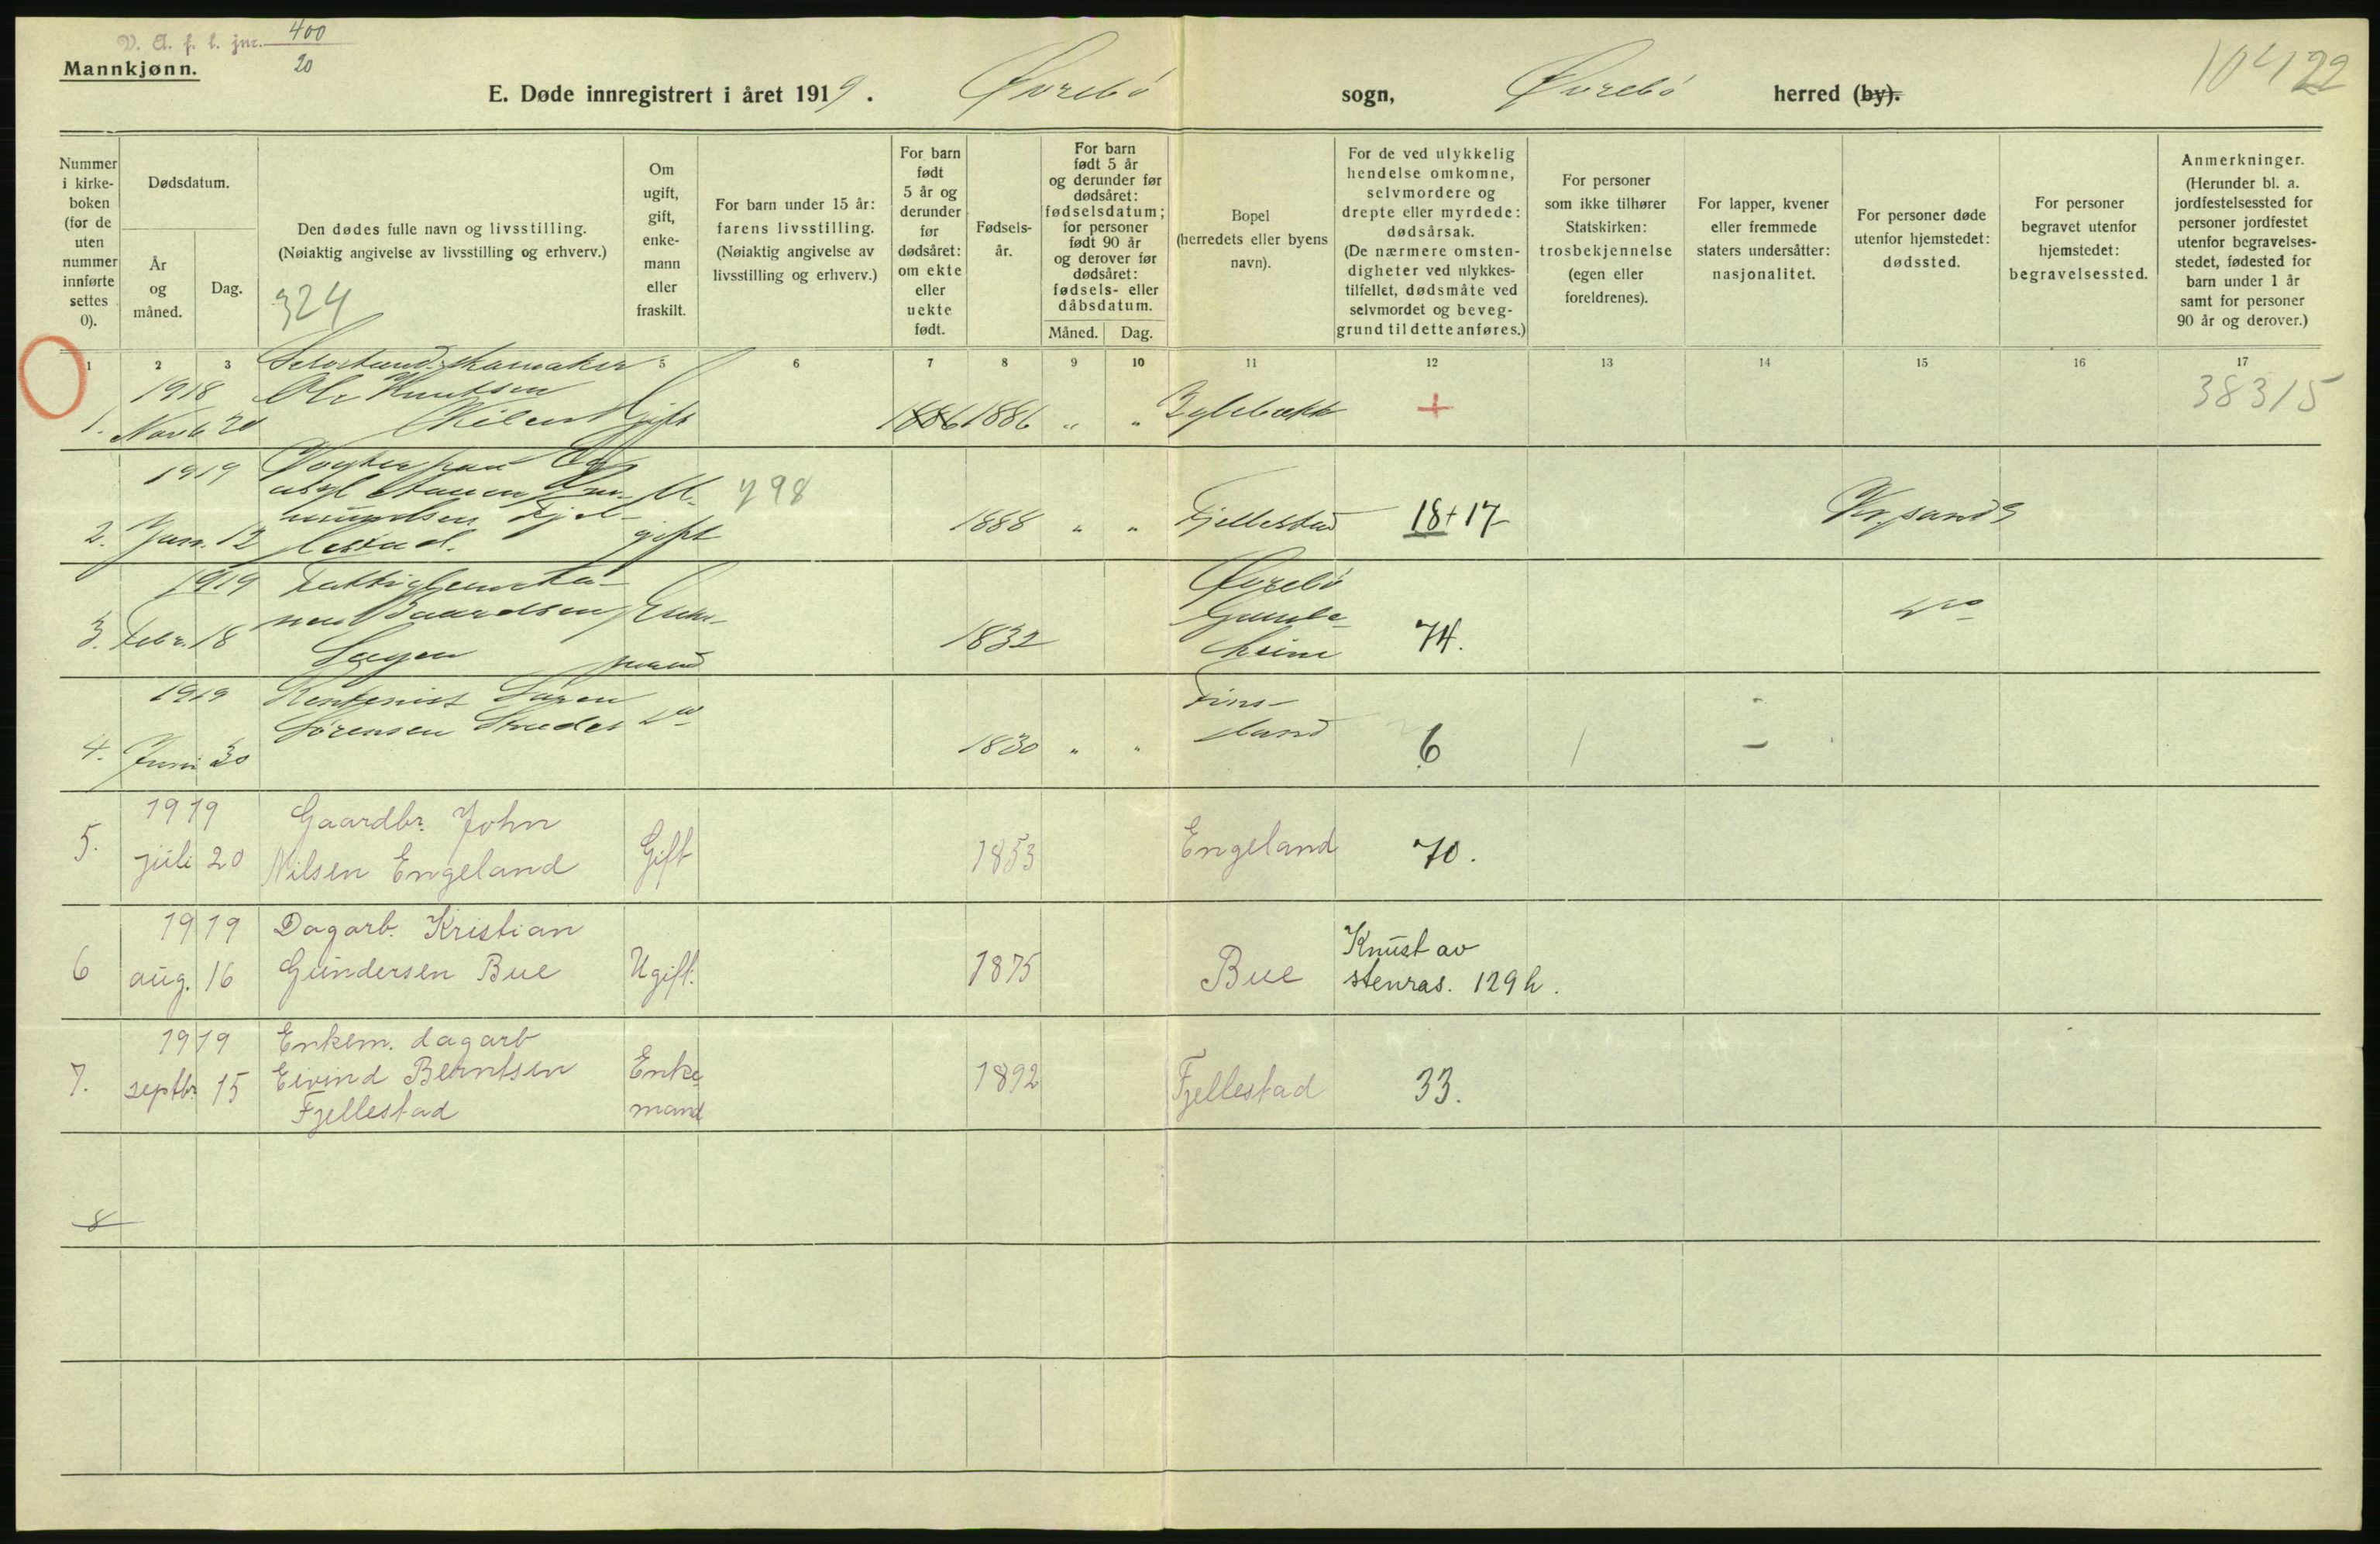 V. A. f. l. jnr. 400
20
Mannkjønn.
E. Døde innregistrert i året 1919. Øvrebö sogn, Øvrebö herred (by).
10422
Nummer i kirkeboken (for de uten nummer innførte settes 0).
Dødsdatum.
År og måned.
Dag.
Den dødes fulle navn og livsstilling.
(Nøiaktig angivelse av livsstilling og erhverv.)
324
Om ugift, gift, enkemann eller fraskilt.
For barn under 15 år: farens livsstilling. (Nøiaktig angivelse av livsstilling og erhverv.)
For barn født 5 år og derunder før dødsåret: om ekte eller uekte født.
Fødselsår.
For barn født 5 år og derunder før dødsåret: fødselsdatum; for personer født 90 år og derover før dødsåret: fødsels- eller dåbsdatum.
Måned. Dag.
Bopel (herredets eller byens navn).
For de ved ulykkelig hendelse omkomne, selvmordere og drepte eller myrdede: dødsårsak. (De nærmere omstendigheter ved ulykkestilfellet, dødsmåte ved selvmordet og beveggrund til dette anføres.)
For personer som ikke tilhører Statskirken: trosbekjennelse (egen eller foreldrenes).
For lapper, kvener eller fremmede staters undersåtter: nasjonalitet.
For personer døde utenfor hjemstedet: dødssted.
For personer begravet utenfor hjemstedet: begravelsessted.
Anmerkninger. (Herunder bl. a. jordfestelsessted for personer jordfestet utenfor begravelsesstedet, fødested for barn under 1 år samt for personer 90 år og derover.)
1 2 3 5 6 7 8 9 10 11 12 13 14 15 16 17
1918 Ole Knutsen 38315
1. Novb 20 Kilen gift 1886 1886 " " +
1919
798
2. Jan. 12 gift 1888 " " Fjellestad 18+17
1919 Øvrebö
3. Febr. 18 Baardsen 1832 74.
mand heim
1919 Søren Fins-
Sörensen
land
4. Juni 30 1830 " " 6
1919 Gaardbr. John
5. juli 20 Nilsen Engeland Gift 1853 Engeland 70.
1919 Dagarb. Kristian Knust av
6 aug. 16 Gundersen Bue Ugift. 1875 Bue stenras. 129 h.
1919 Enkem. dagarb
7. septbr 15 Eivind Berntsen Enke- 1892 Fjellestad 33.
Fjellestad mand
8